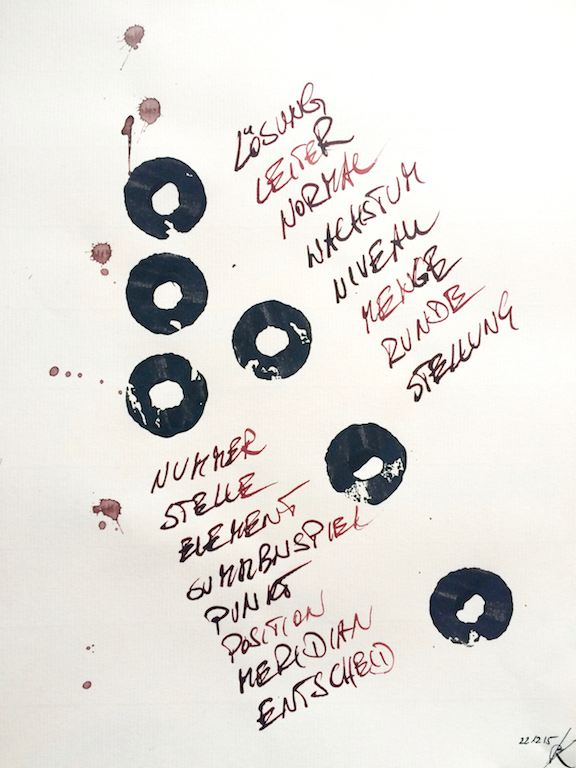 LÖSUNG
LEITER
NORMAL
WACHSTUM
NIVEAU
MENGE
RUNDE
STELLUNG
NUMMER
STELLE
ELEMENT
PUNKT
POSITION
MERIDIAN
ENTSCHEID
22/12/15